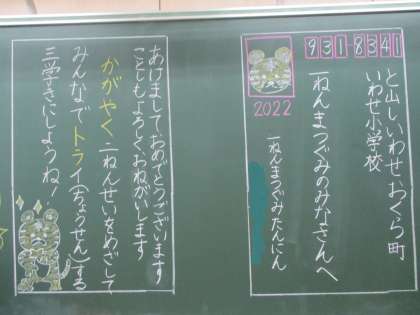 931-8341
と山しいわせおくら町
いわせ小学校
一ねんまつぐみのみなさんへ
2022
一ねんまつぐみたんにん
あけましておめでとうございます
ことしもよろしくおねがいします
かがやく二ねんせいをめざして
みんなでトライ(ちょうせん)する
三学きにしようね!